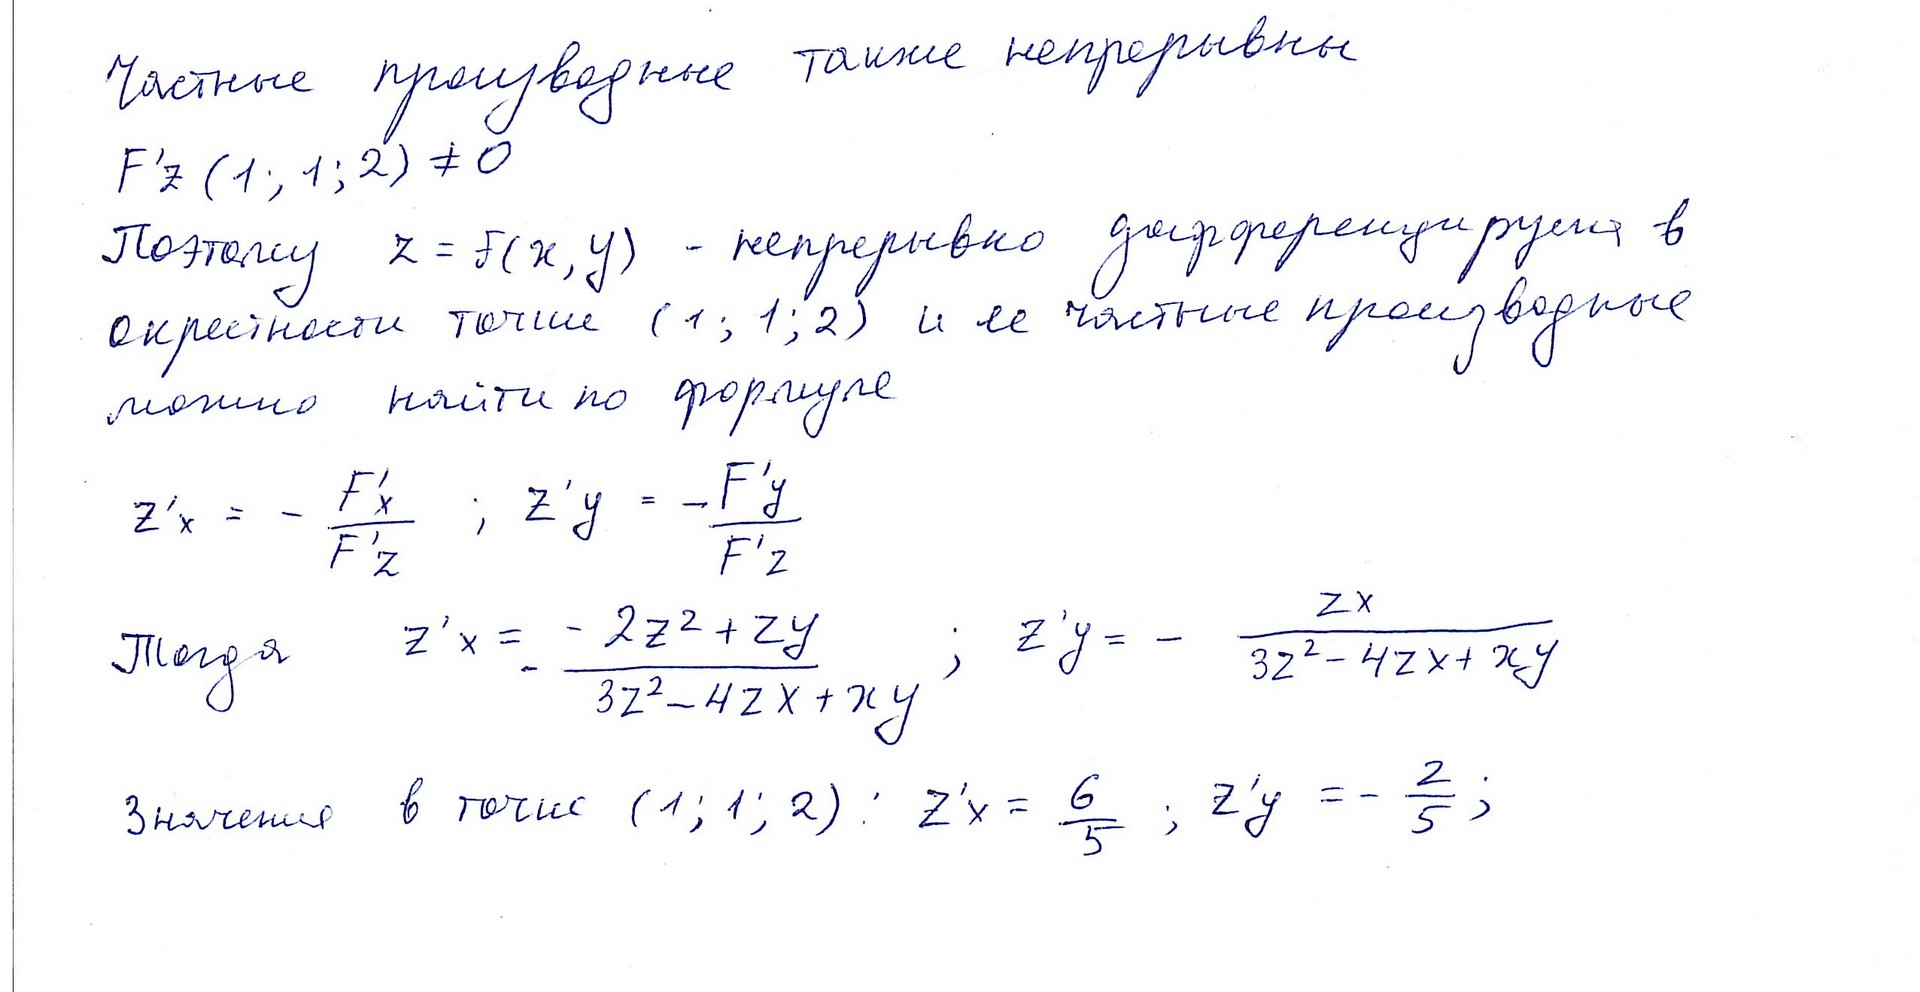 Частные производные также непрерывны
F'z (1; 1; 2) ≠ 0
Поэтому z = f(x, y) - непрерывно дифференцируема в
окрестности точки (1; 1; 2) и ее частные производные
можно найти по формуле
z'x = - F'x / F'z ; z'y = - F'y / F'z
Тогда z'x = - (-2z² + zy) / (3z² - 4zx + xy) ; z'y = - zx / (3z² - 4zx + xy)
Значения в точке (1; 1; 2): z'x = 6/5 ; z'y = - 2/5 ;